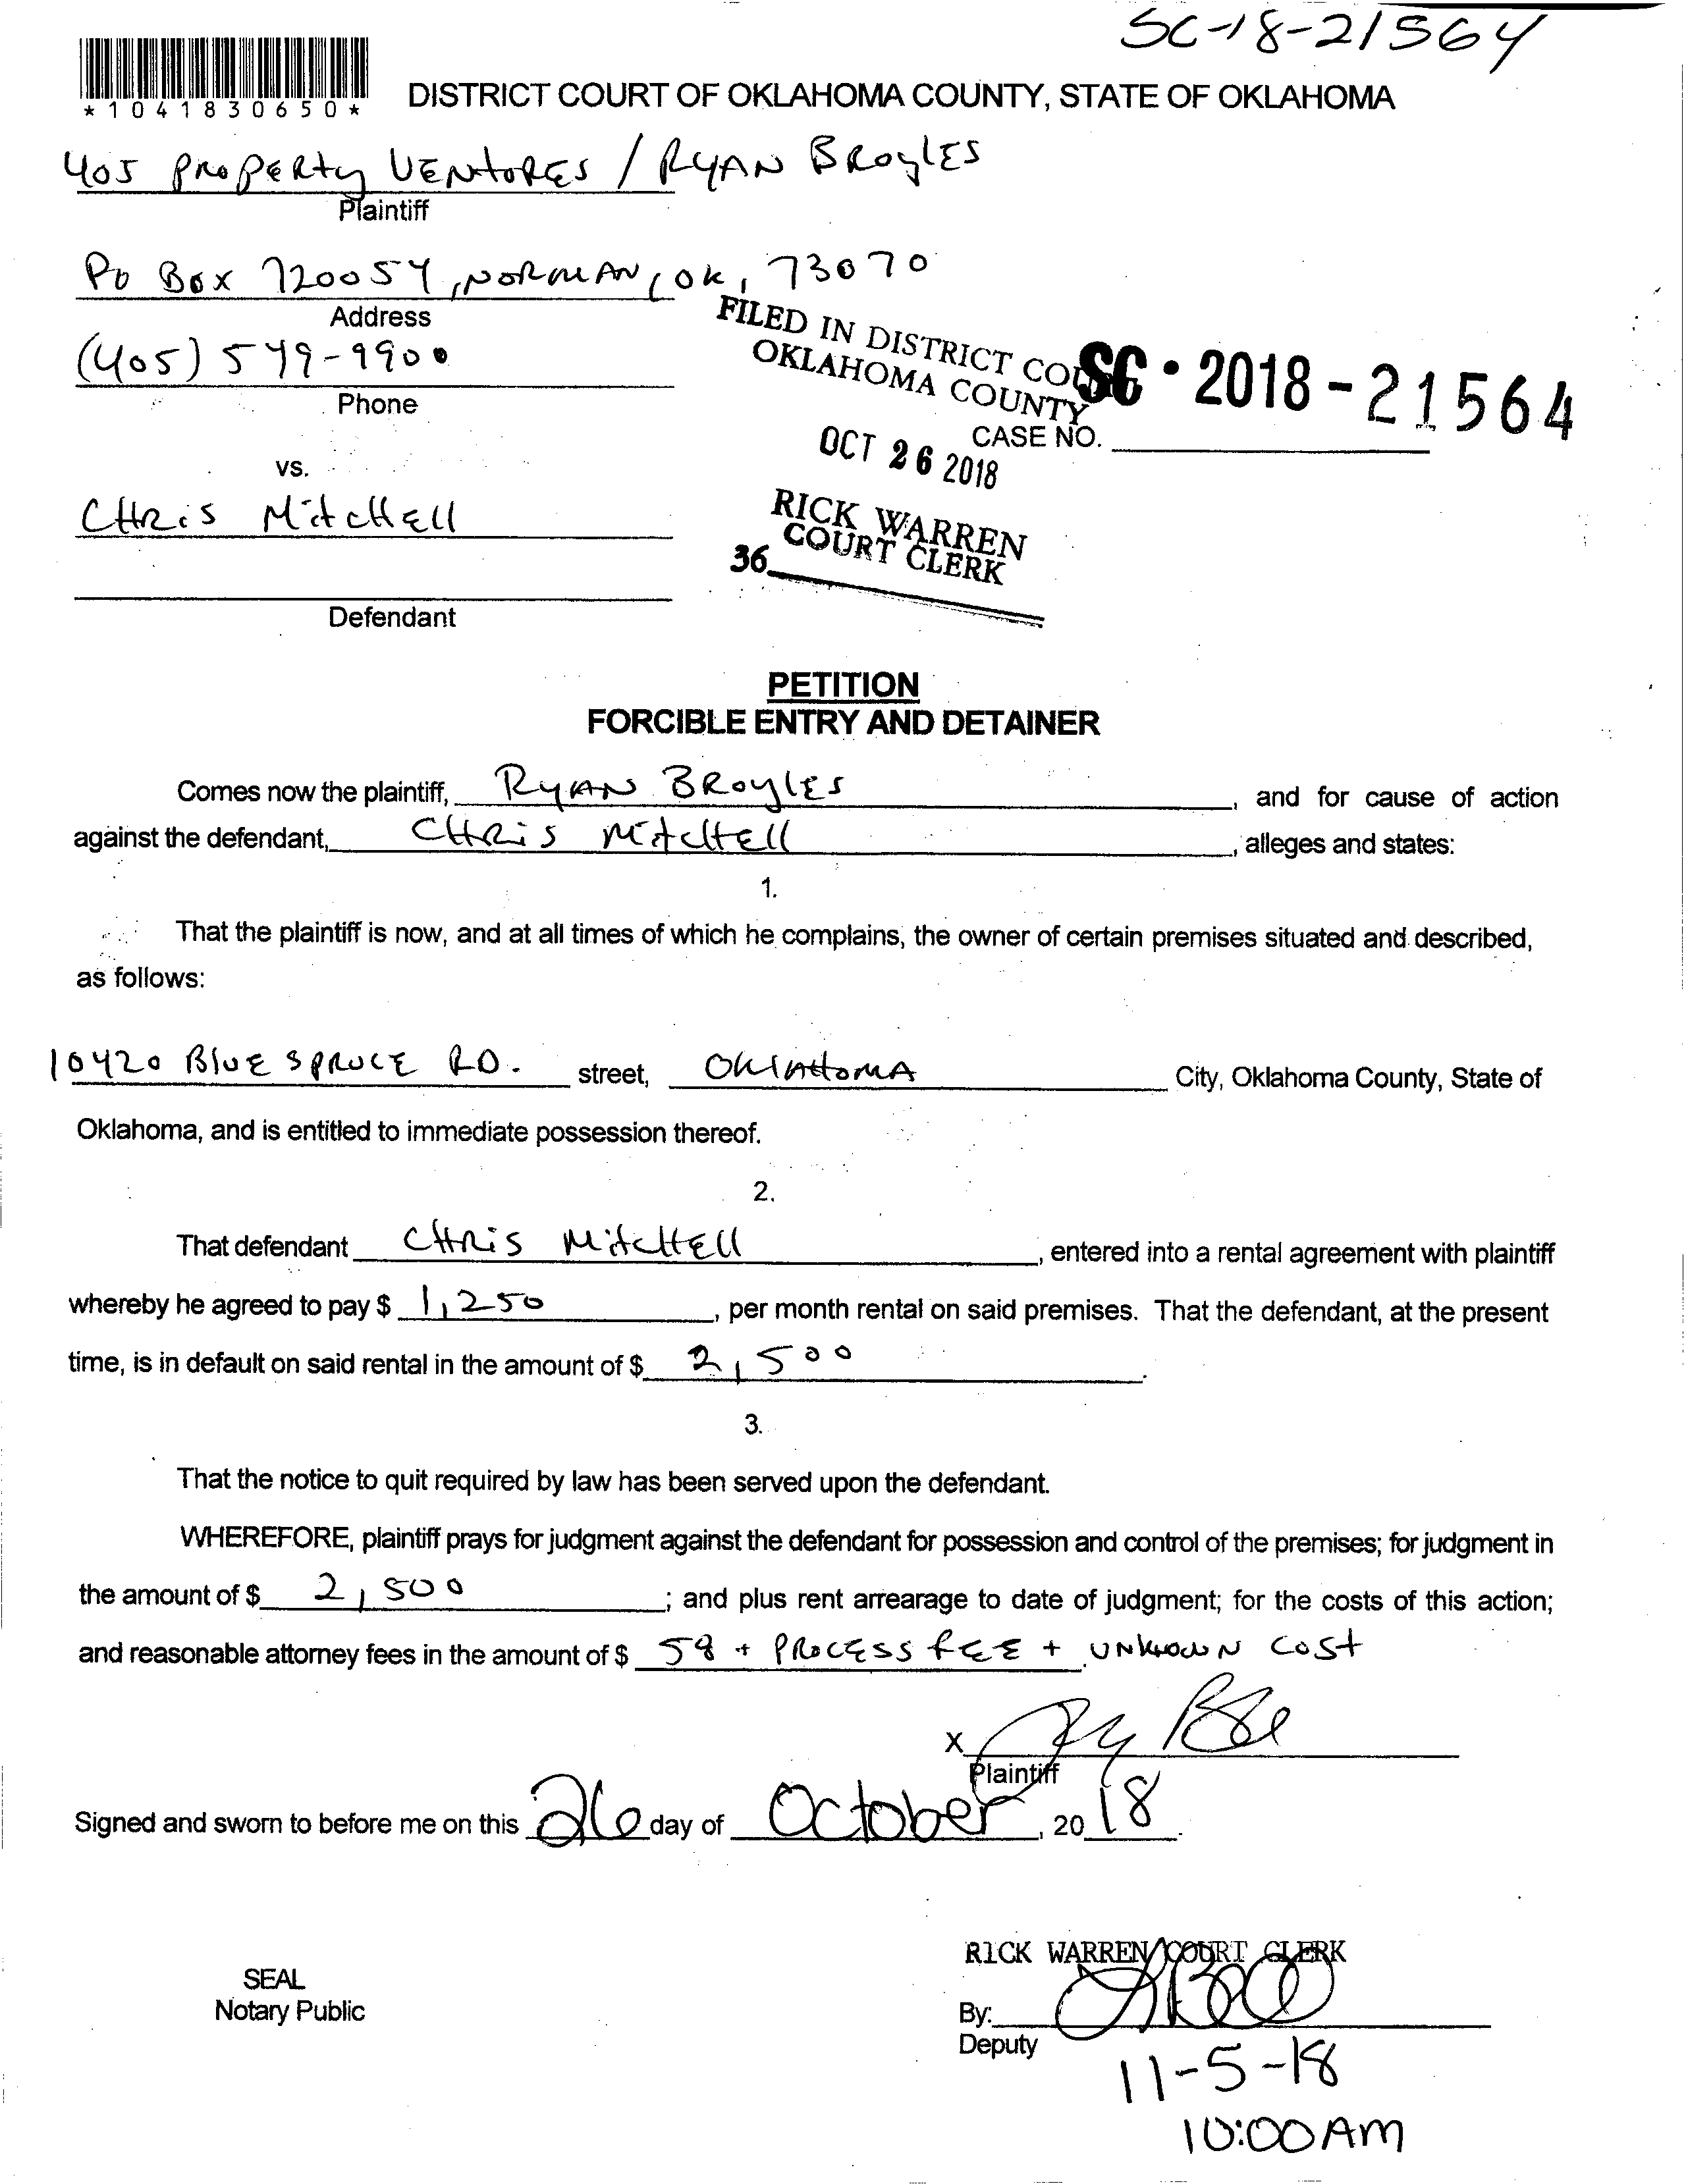 SC-18-21564
*1041830650*
DISTRICT COURT OF OKLAHOMA COUNTY, STATE OF OKLAHOMA
405 PROPERTY VENTORES / RYAN BROYLES
Plaintiff
PO BOX 720054, NORMAN, OK, 73070
Address
(405) 579-9900
Phone
FILED IN DISTRICT COURT
OKLAHOMA COUNTY
SC • 2018-21564
CASE NO.
OCT 26 2018
vs.
CHRiS MitcHEll
RICK WARREN
COURT CLERK
36
Defendant
PETITION
FORCIBLE ENTRY AND DETAINER
Comes now the plaintiff, RYAN BROYLES, and for cause of action
against the defendant, CHRiS MitcHEll, alleges and states:
1.
That the plaintiff is now, and at all times of which he complains, the owner of certain premises situated and described,
as follows:
10420 BLUE SPRUCE RD. street, OKlAHOMA City, Oklahoma County, State of
Oklahoma, and is entitled to immediate possession thereof.
2.
That defendant CHRiS MitcHEll, entered into a rental agreement with plaintiff
whereby he agreed to pay $ 1,250, per month rental on said premises. That the defendant, at the present
time, is in default on said rental in the amount of $ 2,500.
3.
That the notice to quit required by law has been served upon the defendant.
WHEREFORE, plaintiff prays for judgment against the defendant for possession and control of the premises; for judgment in
the amount of $ 2,500; and plus rent arrearage to date of judgment; for the costs of this action;
and reasonable attorney fees in the amount of $ 58 + PROCESS FEE + UNKNOWN COST
X
Plaintiff
Signed and sworn to before me on this 26 day of October, 2018.
RICK WARREN COURT CLERK
SEAL
Notary Public
By:
Deputy
11-5-18
10:00AM